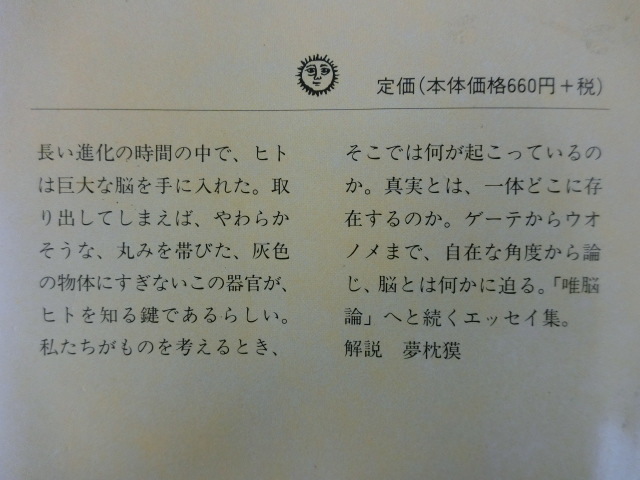 定価(本体価格660円+税)
長い進化の時間の中で、ヒト
は巨大な脳を手に入れた。取
り出してしまえば、やわらか
そうな、丸みを帯びた、灰色
の物体にすぎないこの器官が、
ヒトを知る鍵であるらしい。
私たちがものを考えるとき、
そこでは何が起こっているの
か。真実とは、一体どこに存
在するのか。ゲーテからウオ
ノメまで、自在な角度から論
じ、脳とは何かに迫る。「唯脳
論」へと続くエッセイ集。
解説 夢枕獏